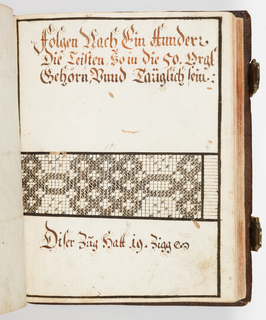 Folgen Nach Ein Hundert
Die Teisten, So in die 50. Orgl
Gehörn, Vnnd Taüglich sein.:
Diser Züg Hatt 19. Zigg